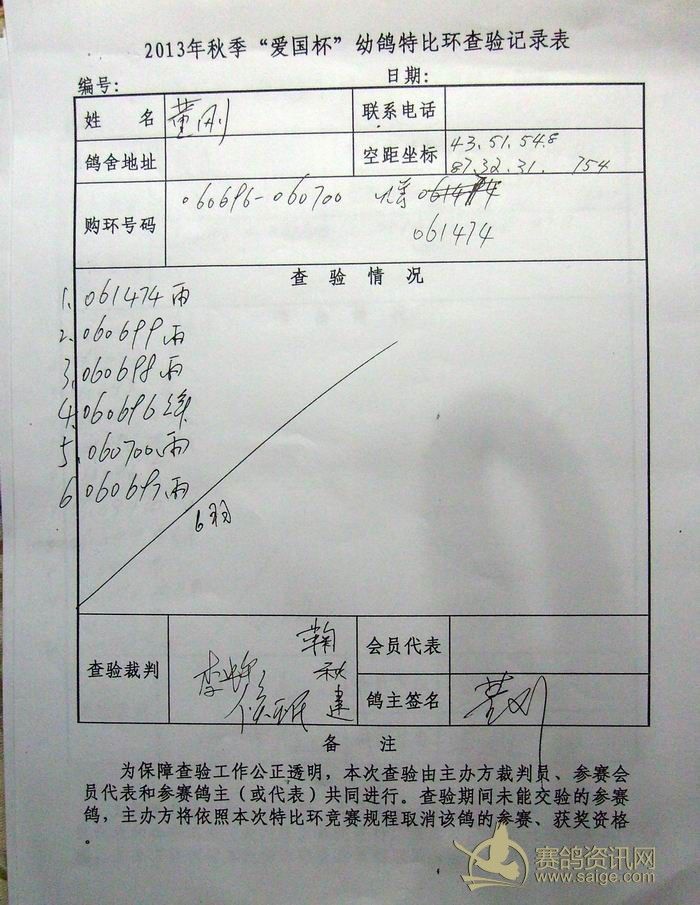 2013年秋季“爱国杯”幼鸽特比环查验记录表
编号: 日期:
姓 名 董刚 联系电话
鸽舍地址 空距坐标 43.51.54.8
87.32.31. 754
购环号码 060696-060700 061474
061474
查 验 情 况
1. 061474 雨
2. 060699 雨
3. 060698 雨
4. 060696 绛
5. 060700 雨
6. 060697 雨
6羽
查验裁判 鞠秋建 会员代表
李 侯珉 鸽主签名 董刚
备 注
为保障查验工作公正透明，本次查验由主办方裁判员、参赛会
员代表和参赛鸽主（或代表）共同进行。查验期间未能交验的参赛
鸽，主办方将依照本次特比环竞赛规程取消该鸽的参赛、获奖资格
。
赛鸽资讯网
www.saige.com